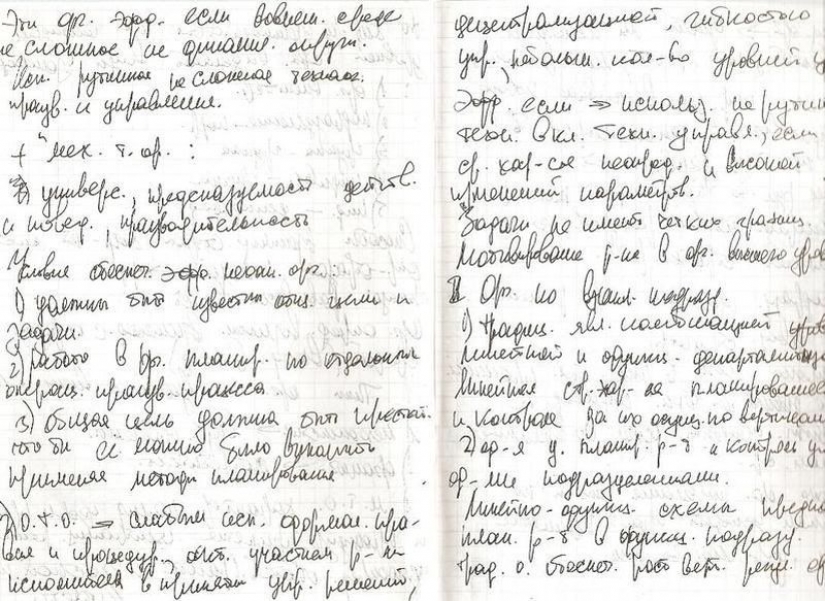 Эти орг. эфф. если во внеш. среде
не сложное не динамич. окруж.
Исп. рутинная не сложная технол.
произв. и управления.
+ "мех. т. ор. :
универс., предсказуемость действ.
и повед, производительность
Условия обеспеч. эфф. механ. орг.:
1) должны быть известны общ. цели и
задачи.
2) работа в ор. планир. по отдельным
операц. произв. процесса
3) общая цель должна быть простой
что бы её можно было
применяя методы планирования
О.Т.О. => слабым исп. формал. пра-
вил и процедур, участием р-
в принятии упр. решений,
децентрализацией, гибкостью
упр., небольш. кол-во уровней
Эфф. если => использ. не рутин
техн. вкл. техн. управл., если
ср. хар-ся неопред. и высокой
параметров.
Задачи не имеют четких границ.
Мотивирование р-ка в орг. высшего уров
II Ор. по взаим. подразд.
1) традиц. явл. комбинацией
линейной и функц. департаментиз
Линейная стр. хар-ся планированием
и контроля по вертикали
планир. р-т и контроль
подразделениями.
Линейно-функц. схемы
план. р-т в функц. подразд.
трад. о. обеспеч. рост